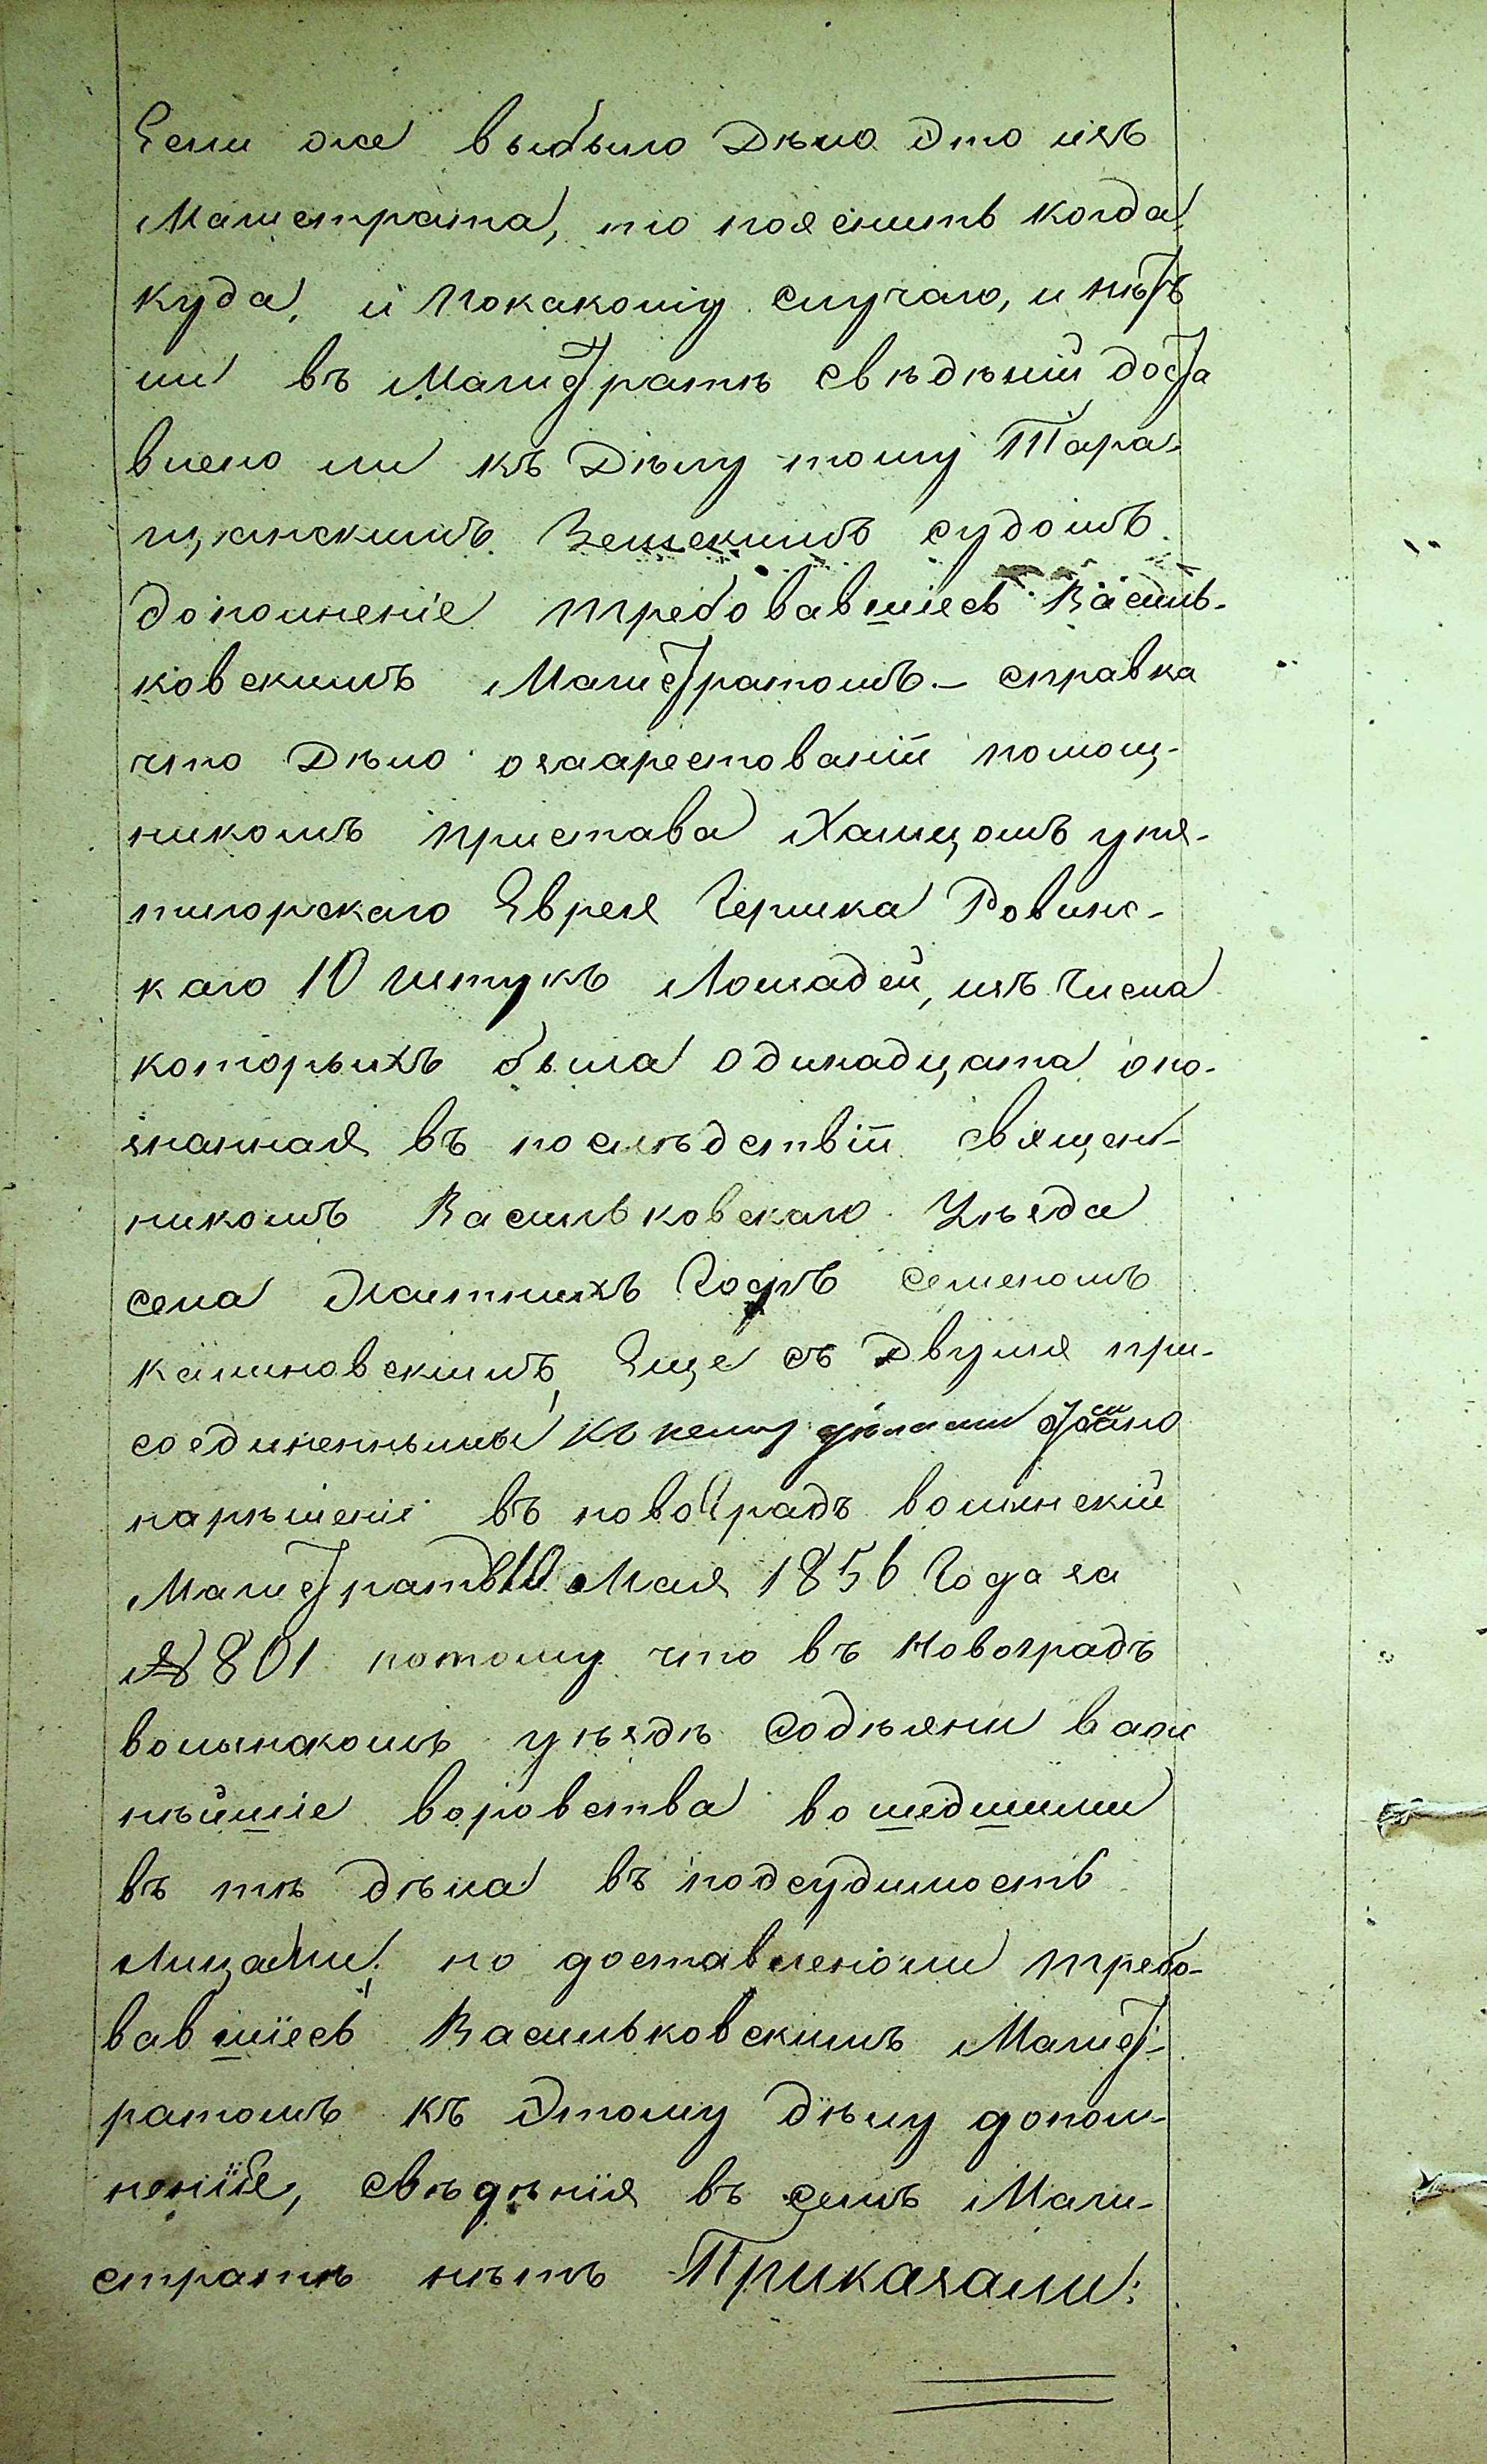 Если же выбыло Дѣло Это изъ
Магистрата, то пояснить когда,
куда, и покакому случаю, и нѣтъ
ли въ Магистратѣ свѣдѣній доста
влено ли къ Дѣлу тому Тара-
щанскимъ Земскимъ судомъ
дополненіе требовавшіесь Василь-
ковскимъ Магистратомъ. – справка
что Дѣло озаарестованіи помощ-
никомъ пристава Халецомъ упя-
тигорскаго Еврея Гершка Ровинс-
каго 10 штукъ Лошадей, изъ числа
которыхъ была одинадцата опо-
знанная въ послѣдствіи священ-
никомъ Васильковскаго Уѣзда
села Млитнихъ семеномъ
калиновскимъ, Еще съ Двумя при-
соединенными къ нему дѣлами
нарѣшеніе въ новоградъ волынскій
Магистратъ 10 Мая 1856 Года за
№ 801 потому что въ Новоградъ
волынскомъ уѣздѣ содѣяни важ
нѣйшіе воровства вошедшими
въ тѣ дѣла въ подсудимость
Лицами; но доставленоли требо-
вавшіесь Васильковскимъ Магист-
ратомъ къ Этому дѣлу допол-
неніе, свѣдѣнія въ семъ Маги-
стратѣ нѣтъ Приказали: